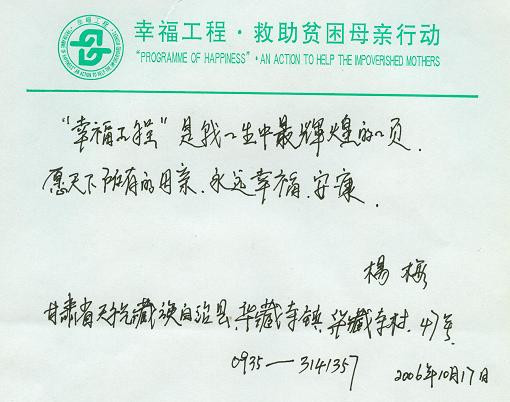 幸福工程·救助贫困母亲行动
"PROGRAMME OF HAPPINESS"·AN ACTION TO HELP THE IMPOVERISHED MOTHERS
“幸福工程”是我一生中最辉煌的一页.
愿天下所有的母亲、永远幸福、安康.
楊梅
甘肃省天祝藏族自治县、华藏寺镇、华藏寺村.47号.
0935—3141357 2006年10月17日